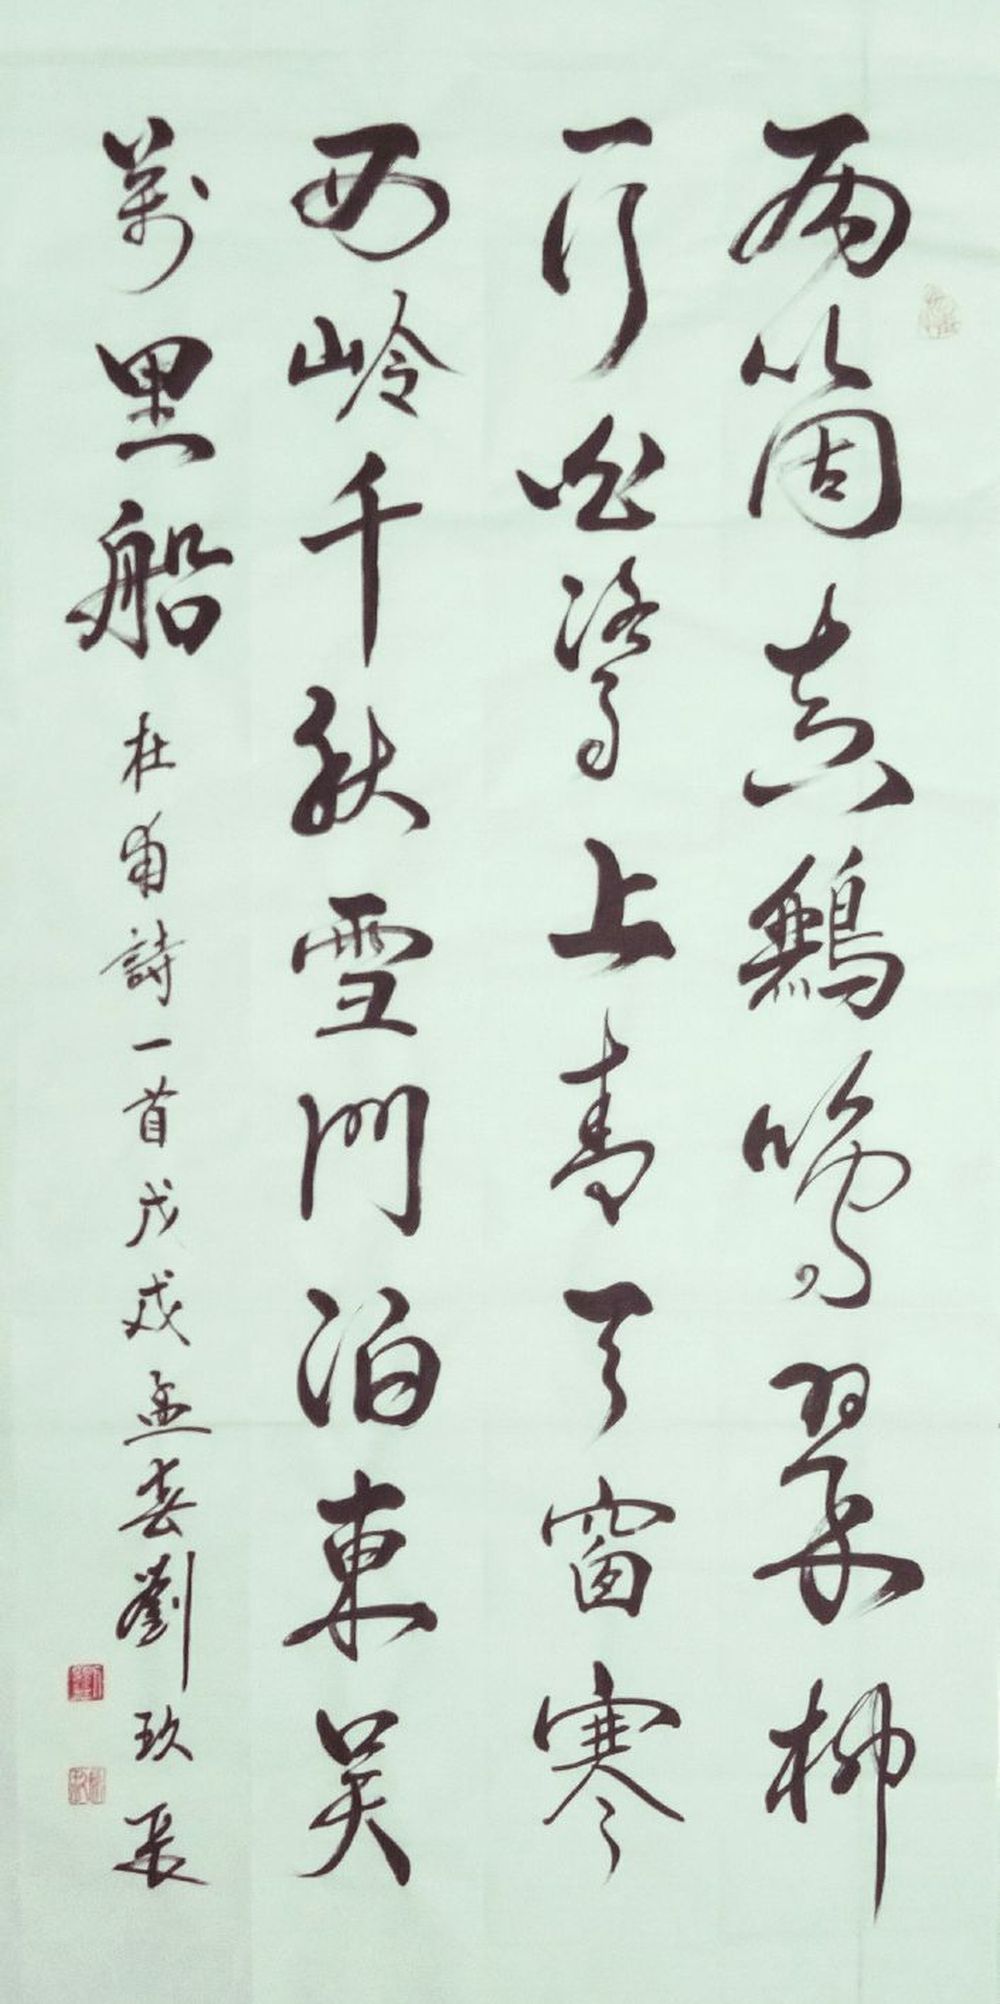 兩箇黃鸝鳴翠柳
一行白鷺上青天窗寒
西岭千秋雪門泊東吳
萬里船 杜甫詩一首戊戌孟春劉玖長